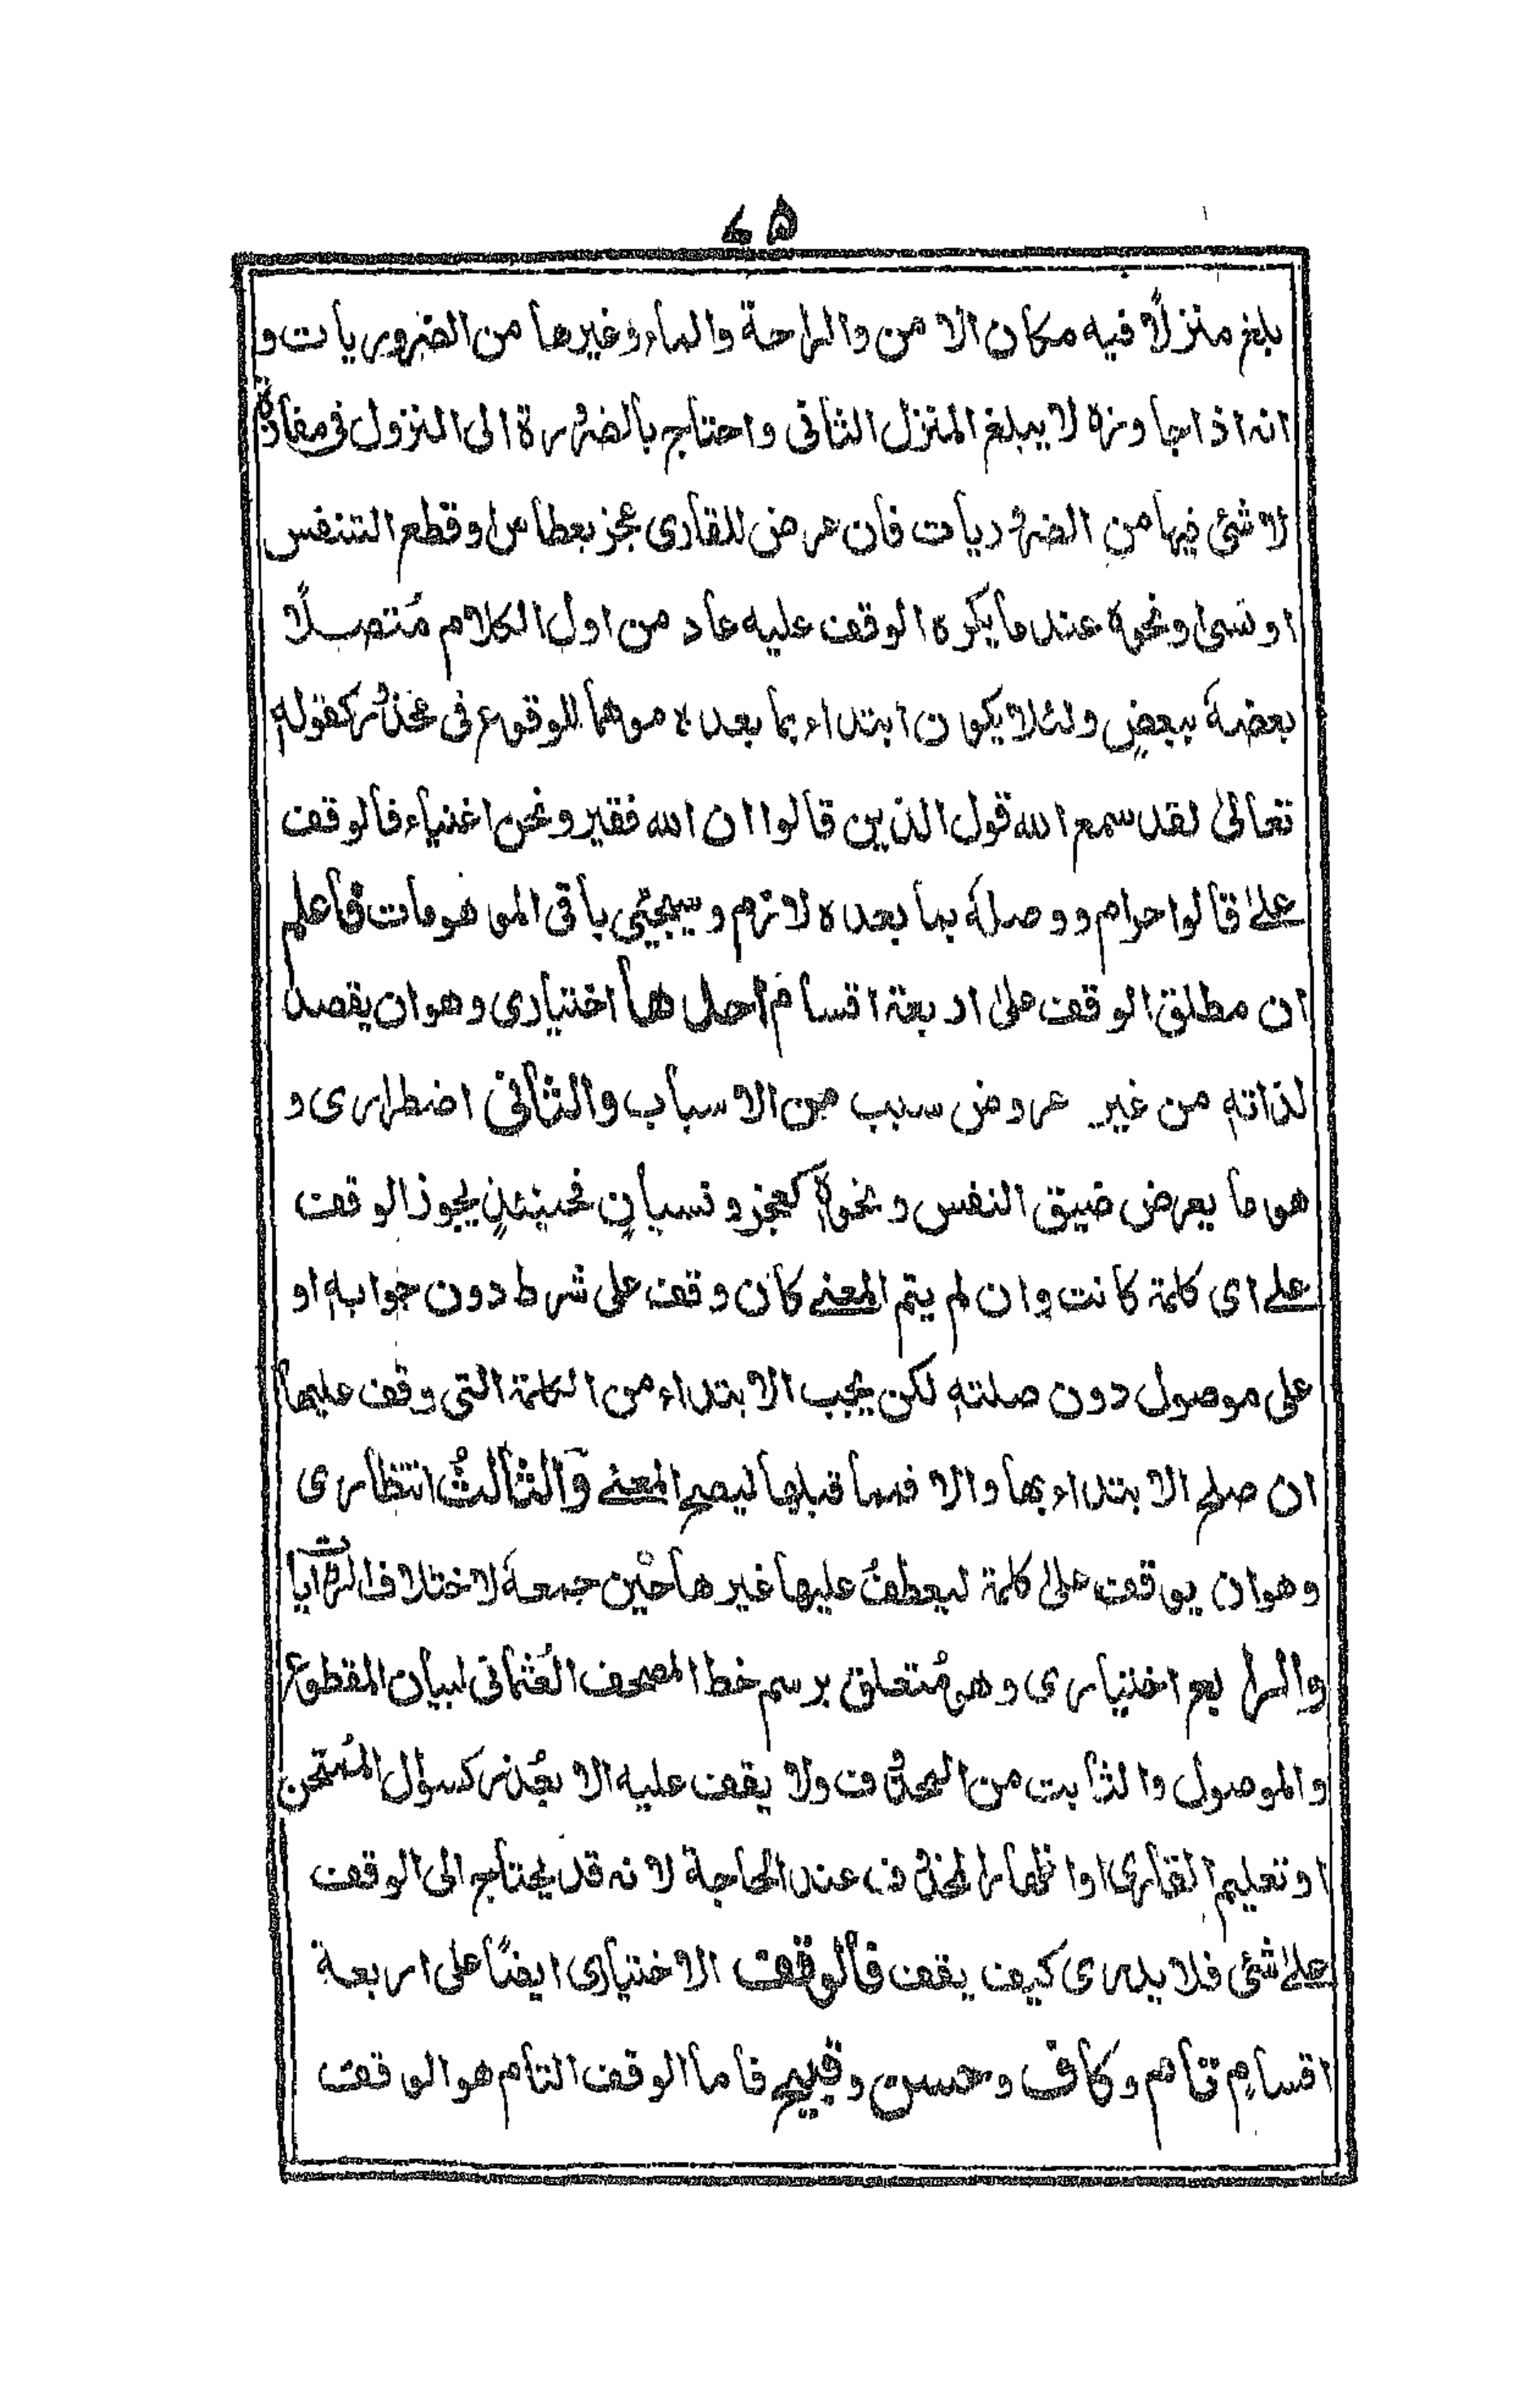 ۷۵
بلغ منزلًا فيه مكان الامن والراحة والماء وغيرها من الضروريات و
انه اذا جاوزه لا يبلغ المنزل الثانى واحتاج بالضرورة الى النزول فى مفازة
لا شئ فيها من الضروريات فان عرض للقارى عجز بعطاس او قطع التنفس
او نسى او نحوه عند ما يكره الوقف عليه عاد من اول الكلام مُتصلًا
بعضهٗ ببعضٍ ولئلا يكون ابتداء بما بعده موهما للوقوع فى محذور كقولهٖ
تعالىٰ لقد سمع الله قول الذين قالوا ان الله فقير ونحن اغنياء فالوقف
علىٰ قالوا حرام ووصلهٗ بما بعده لازم وسيجيئ باقى الموهومات فاعلم
ان مطلق الوقف علىٰ اربعة اقسام احدها اختيارى وهو ان يقصد
لذاتهٖ من غير عروض سبب من الاسباب والثانى اضطرارى و
هو ما يعرض ضيق النفس ونحوهٖ كعجز ونسيانٍ فحينئذٍ يجوز الوقف
علے اى كلمة كانت وان لم يتم المعنے كان وقف على شرط دون جوابهٖ او
على موصول دون صلتهٖ لكن يجب الابتداء من الكلمة التى وقف عليها
ان صلح الابتداء بها والا فما قبلها ليصح المعنے والثالثُ انتظارى
وهو ان يوقف علىٰ كلمة ليعطفُ عليها غيرها حيْن جمعهٗ لاختلاف الروايات
والرابع اختيارى وهو مُتعلق برسم خط المصحف العُثمانى لبيان المقطوع
والموصول والثابت من المحذوف ولا يقف عليه الا بعُذر كسؤال المُمتحن
او تعليم القارى او اظهار المحذوف عند الحاجة لانه قد يحتاج الى الوقف
علىٰ شئ فلا يدرى كيف يقف فالوقف الاختيارى ايضًا على اربعة
اقسامٍ تام وكاف وحسن وقبيح فاما الوقف التام هو الوقف